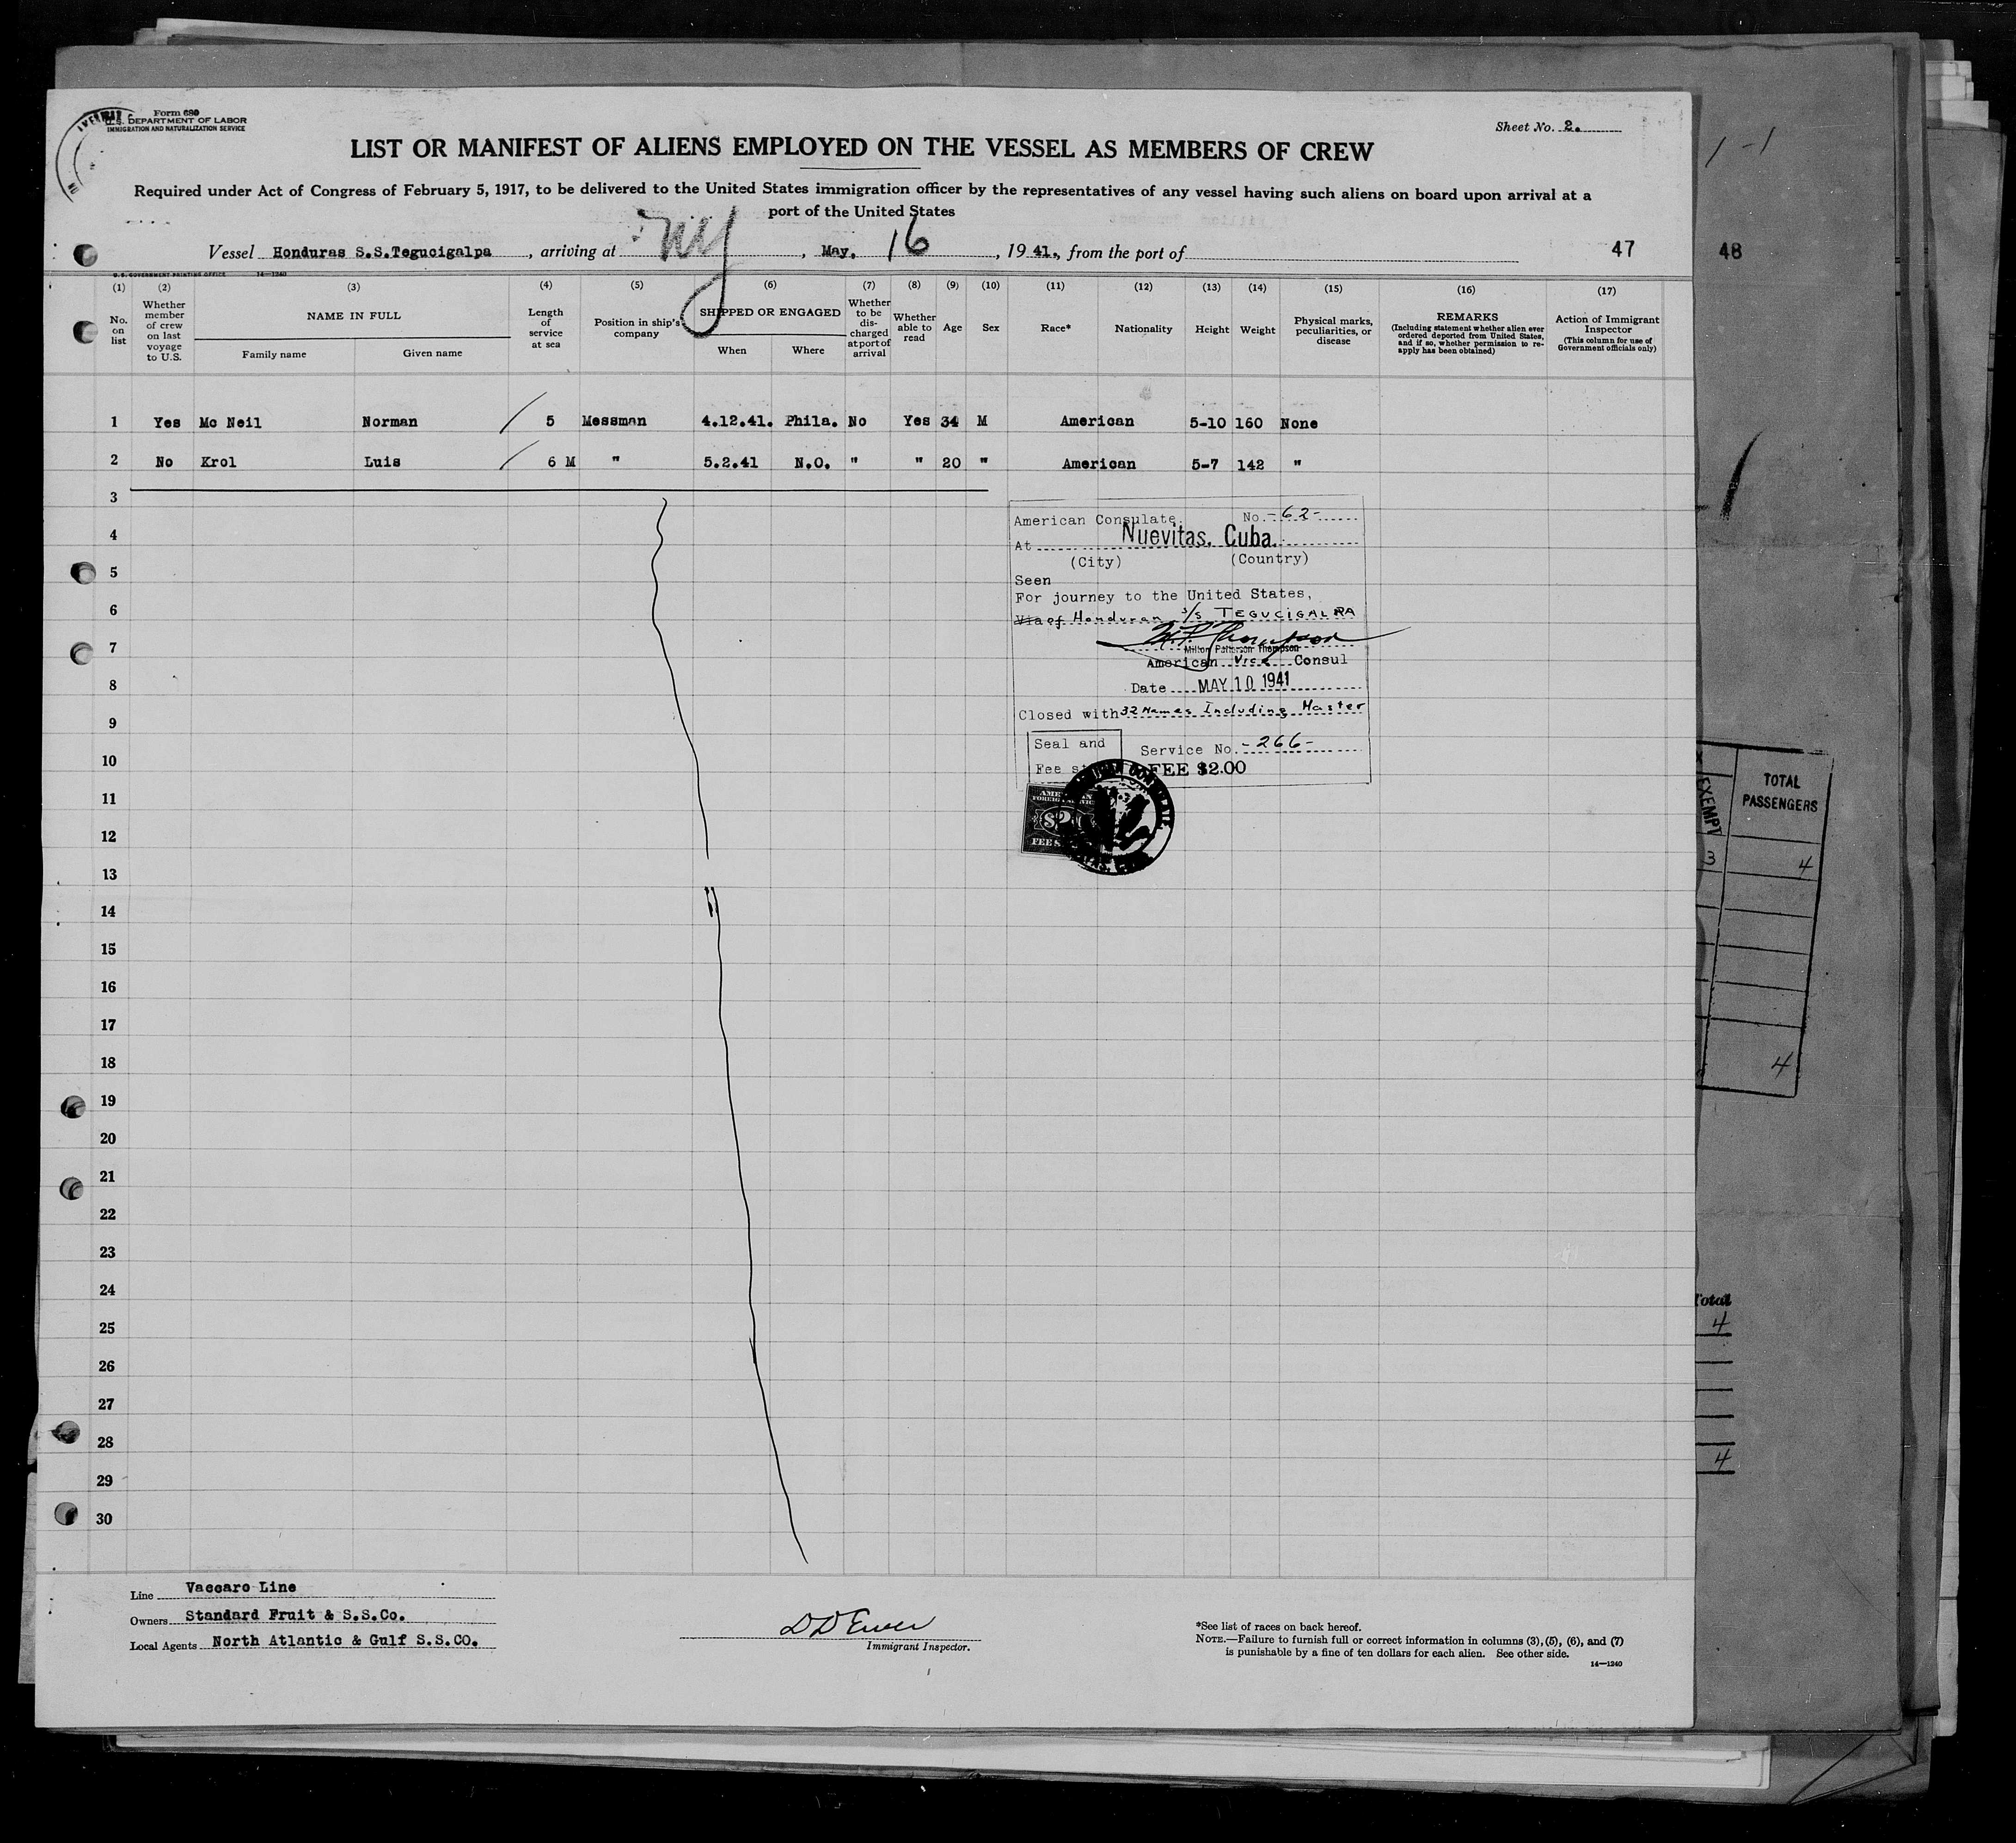 Form 680
U. S. DEPARTMENT OF LABOR
IMMIGRATION AND NATURALIZATION SERVICE
Sheet No. 2.
LIST OR MANIFEST OF ALIENS EMPLOYED ON THE VESSEL AS MEMBERS OF CREW
Required under Act of Congress of February 5, 1917, to be delivered to the United States immigration officer by the representatives of any vessel having such aliens on board upon arrival at a
port of the United States
Vessel Honduras S.S.Tegucigalpa, arriving at NY, May. 16, 19 41., from the port of 47 48
U. S. GOVERNMENT PRINTING OFFICE 14—1240
(1) (2) (3) (4) (5) (6) (7) (8) (9) (10) (11) (12) (13) (14) (15) (16) (17)
No. on list
Whether member of crew on last voyage to U.S.
NAME IN FULL
Family name Given name
Length of service at sea
Position in ship's company
SHIPPED OR ENGAGED
When Where
Whether to be discharged at port of arrival
Whether able to read
Age
Sex
Race*
Nationality
Height
Weight
Physical marks, peculiarities, or disease
REMARKS
(Including statement whether alien ever ordered deported from United States, and if so, whether permission to reapply has been obtained)
Action of Immigrant Inspector
(This column for use of Government officials only)
1 Yes Mc Neil Norman 5 Messman 4.12.41. Phila. No Yes 34 M American 5-10 160 None
2 No Krol Luis 6 M " 5.2.41 N.O. " " 20 " American 5-7 142 "
3
4
5
6
7
8
9
10
11
12
13
14
15
16
17
18
19
20
21
22
23
24
25
26
27
28
29
30
American Consulate No. -62-
At Nuevitas, Cuba.
(City) (Country)
Seen
For journey to the United States,
Via of Honduran S/S TEGUCIGALPA
M.P. Thompson
Milton Patterson Thompson
American Vice Consul
Date MAY 10 1941
Closed with 32 Names Including Master
Seal and Service No. -266-
Fee FEE $2.00
Line Vaccaro Line
Owners Standard Fruit & S.S.Co.
Local Agents North Atlantic & Gulf S.S.CO.
Immigrant Inspector.
*See list of races on back hereof.
NOTE.—Failure to furnish full or correct information in columns (3), (5), (6), and (7)
is punishable by a fine of ten dollars for each alien. See other side.
14—1240
EXEMPT
TOTAL
PASSENGERS
3 4
4
Total
4
4